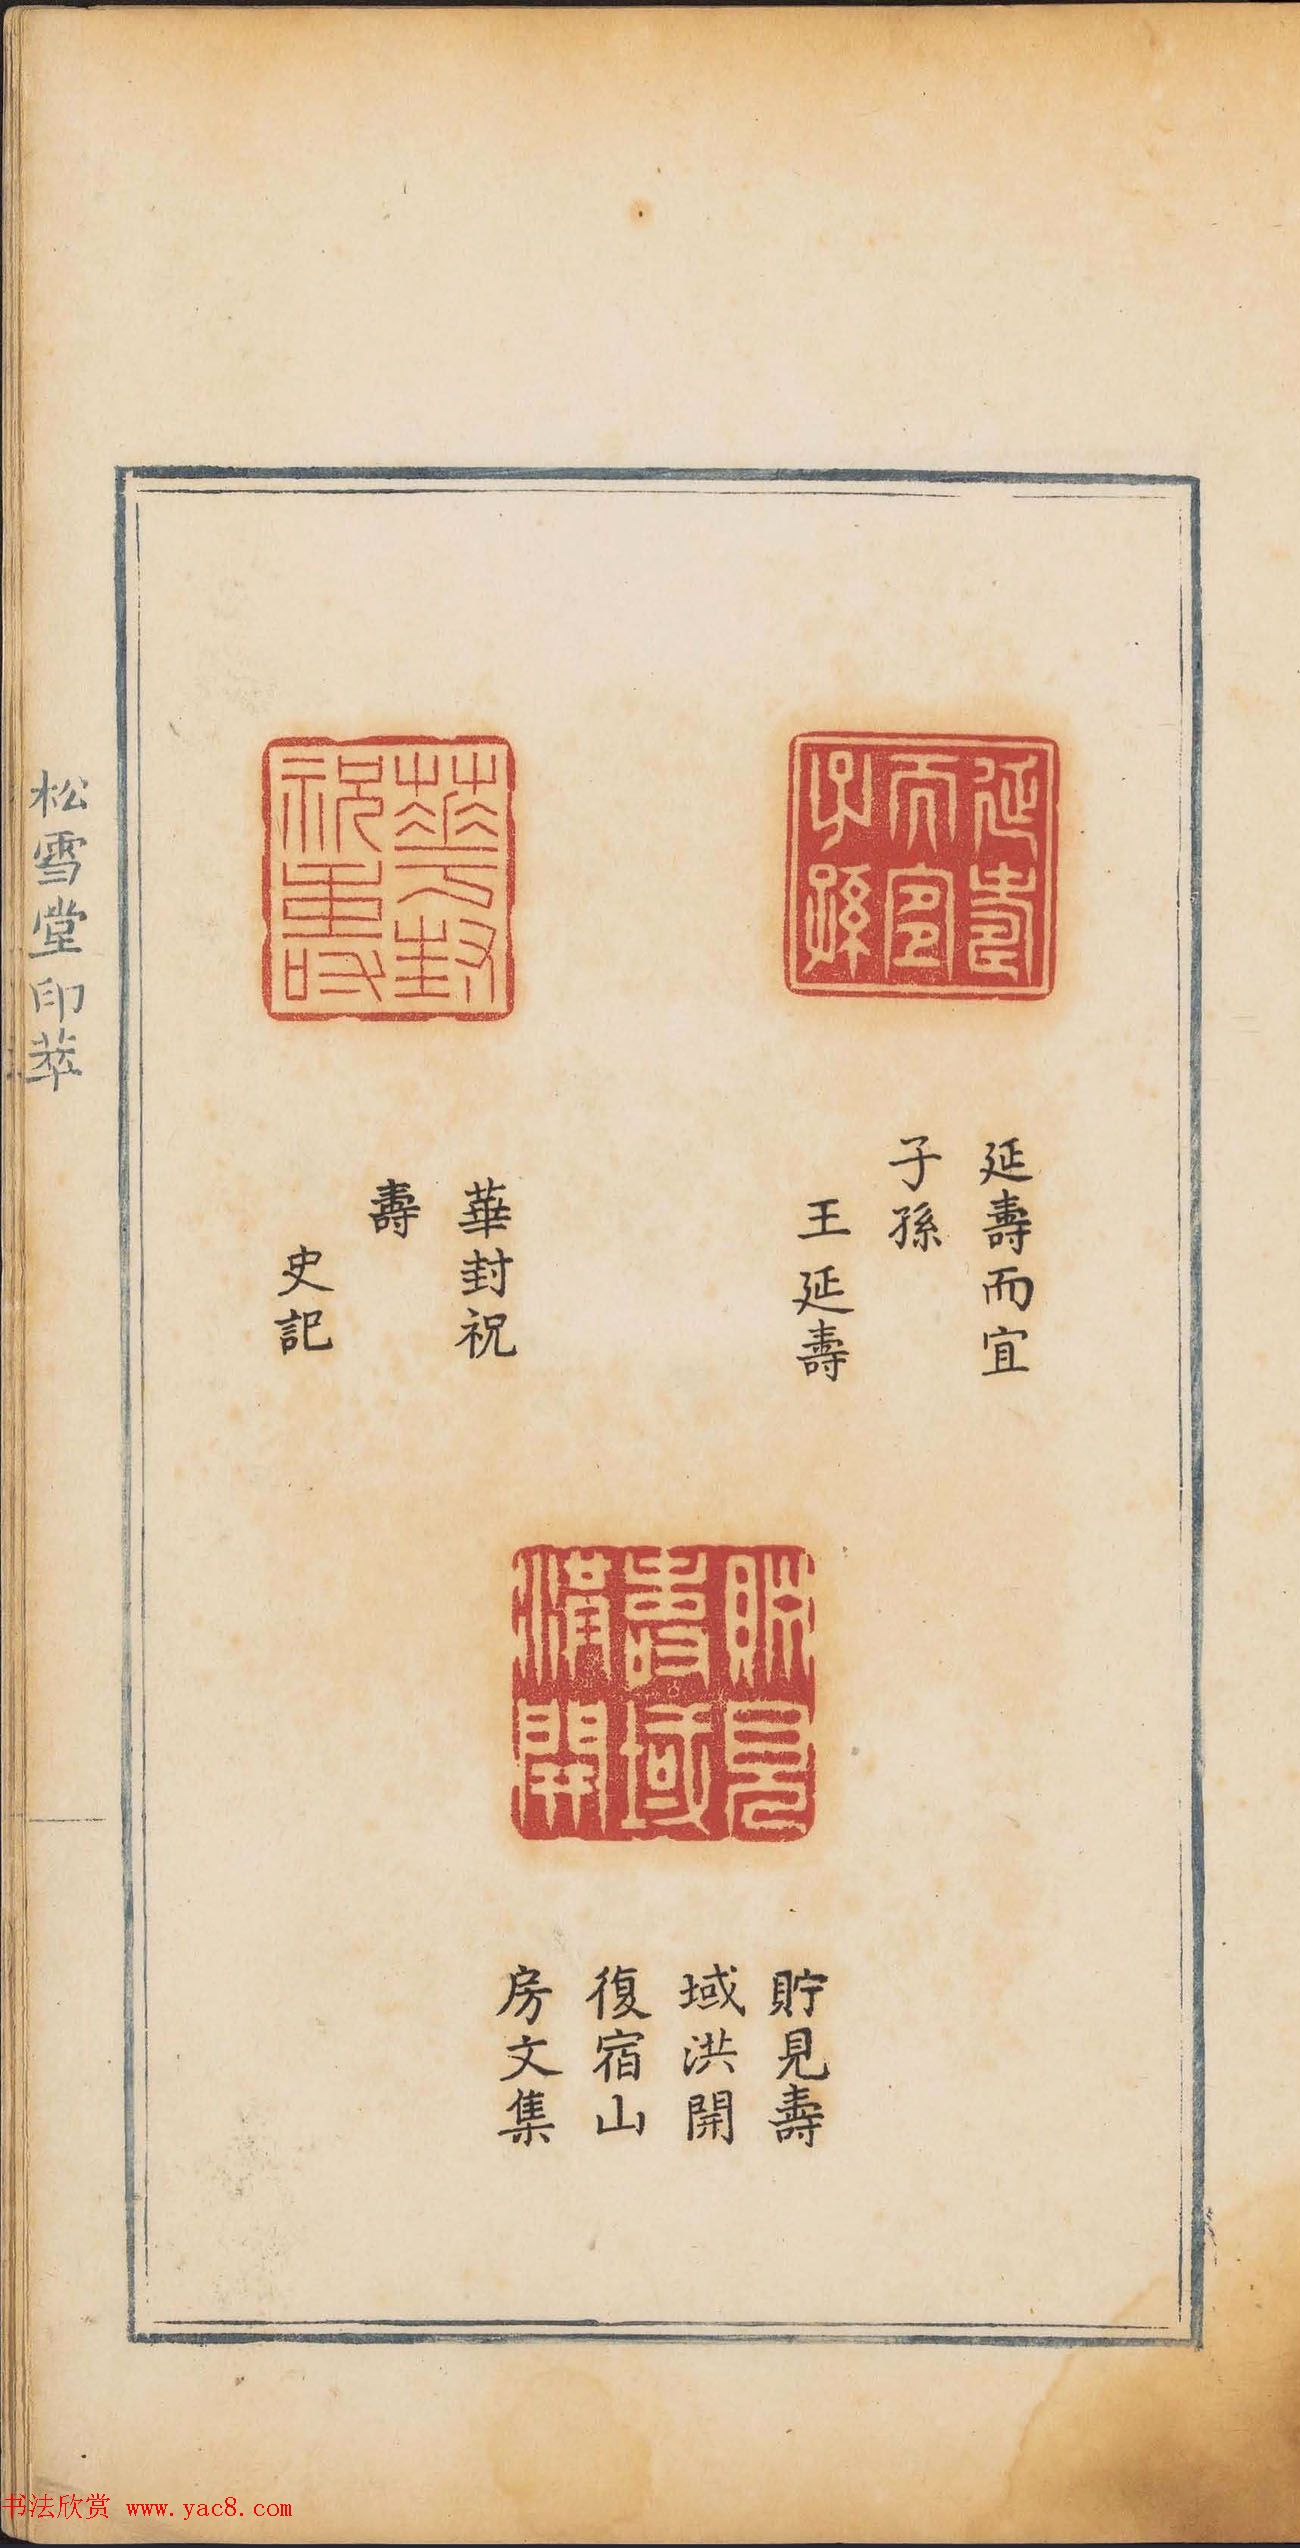 延壽而宜
子孫
王延壽
延壽
而宜
子孫
華封祝
壽
史記
華封
祝壽
貯見壽
域洪開
復宿山
房文集
貯見
壽域
洪開
松雪堂印萃
书法欣赏 www.yac8.com